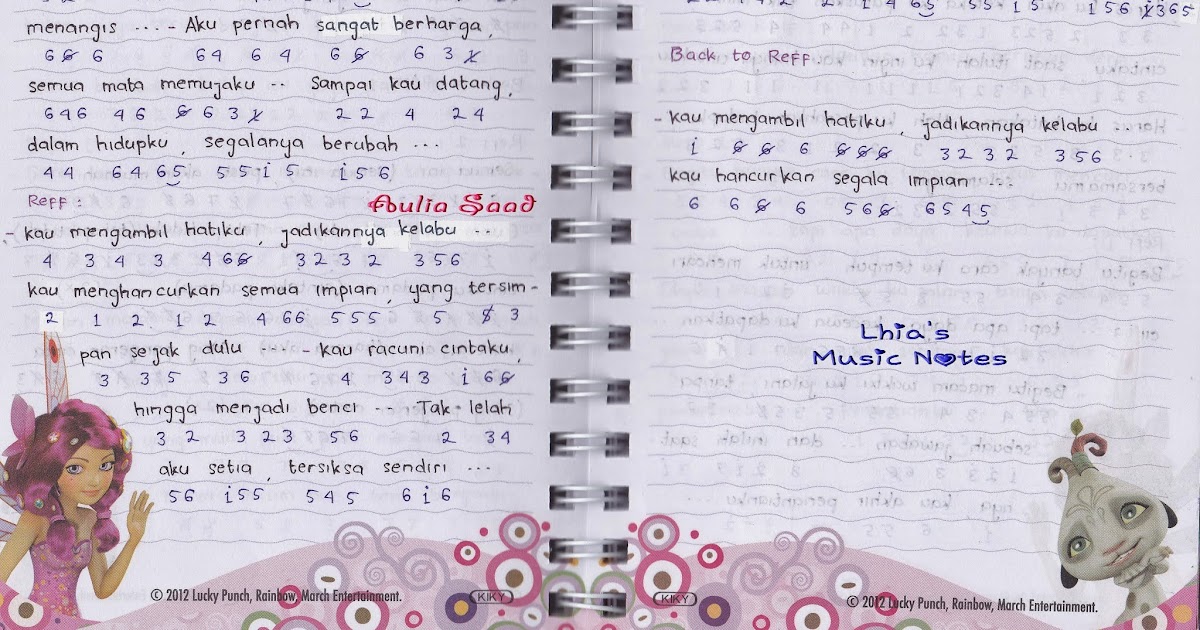 menangis ... - Aku pernah sangat berharga,
6 6 6 6 4 6 4 6 6 6 3 1
semua mata memujaku .. Sampai kau datang,
6 4 6 4 6 6 6 3 1 2 2 4 2 4
dalam hidupku, segalanya berubah ...
4 4 6 4 6 5 5 5 i 5 i 5 6
Reff :
Aulia Saad
- kau mengambil hatiku, jadikannya kelabu ...
4 3 4 3 4 6 6 3 2 3 2 3 5 6
kau menghancurkan semua impian, yang tersim -
2 1 2 1 2 4 6 6 5 5 5 5 5 3
pan sejak dulu ... - kau racuni cintaku,
3 3 5 3 6 4 3 4 3 i 6 6
hingga menjadi benci .. Tak lelah
3 2 3 2 3 5 6 2 3 4
aku setia, tersiksa sendiri ...
5 6 i 5 5 5 4 5 6 i 6
© 2012 Lucky Punch, Rainbow, March Entertainment.
KIKY
Back to Reff
- kau mengambil hatiku, jadikannya kelabu ...
i 6 6 6 6 6 6 3 2 3 2 3 5 6
kau hancurkan segala impian ...
6 6 6 6 5 6 6 6 5 4 5
Lhia's
Music Notes
KIKY
© 2012 Lucky Punch, Rainbow, March Entertainment.